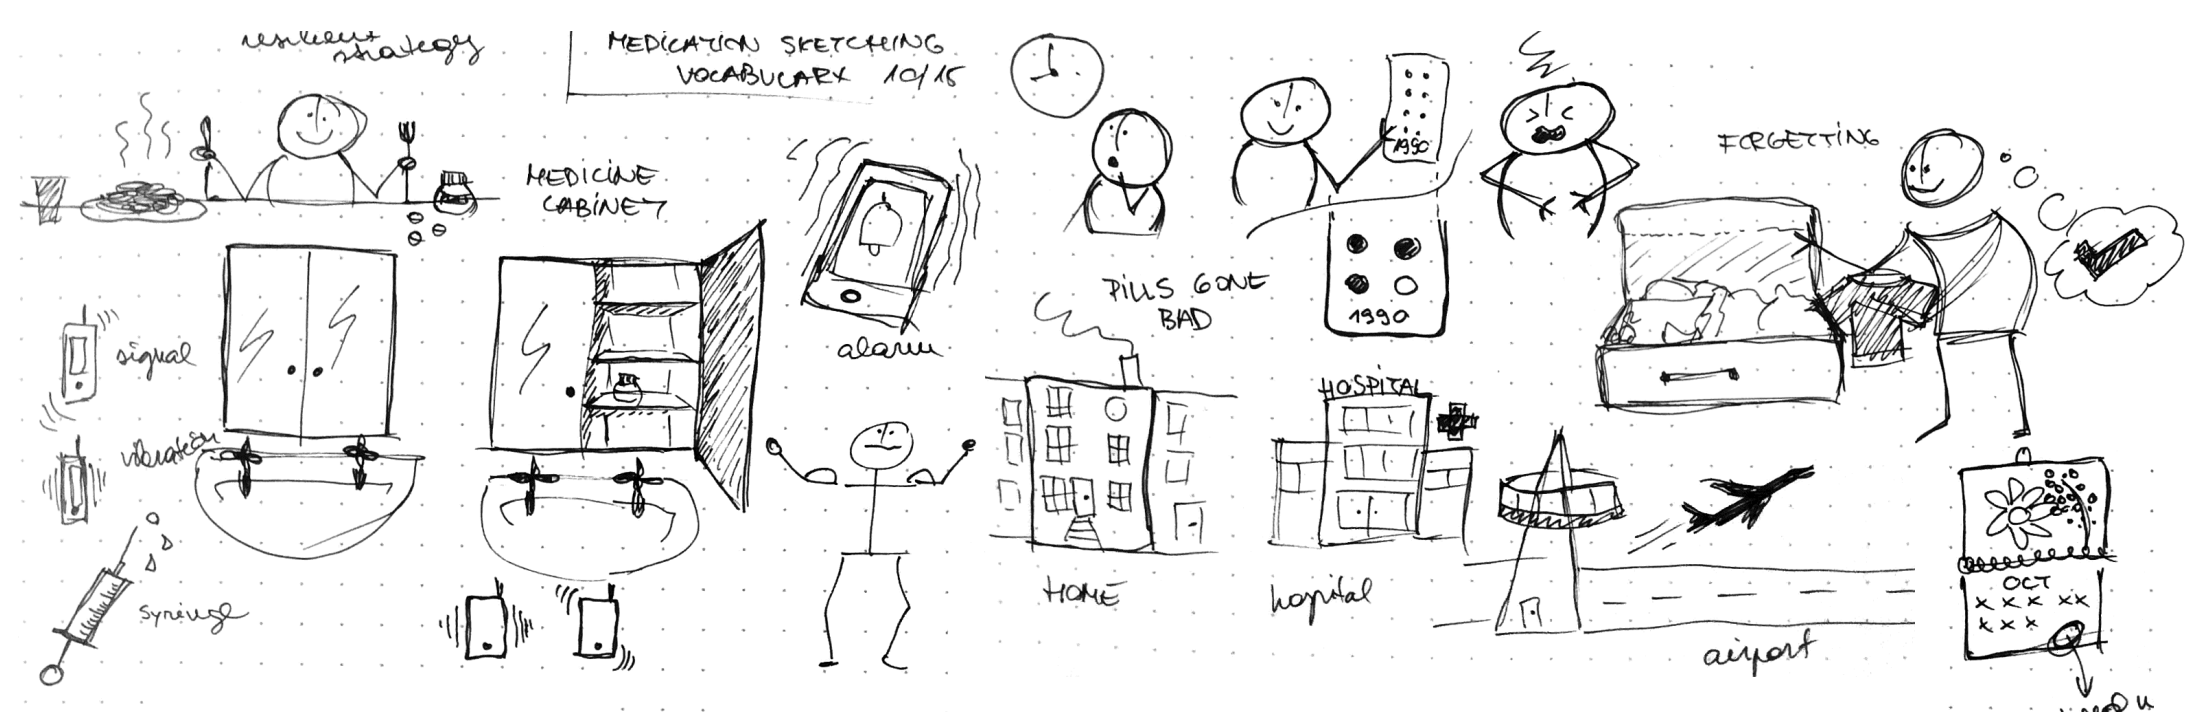 resilient
strategy
MEDICATION SKETCHING
VOCABULARY 10/15
MEDICINE
CABINET
signal
vibration
syringe
alarm
1990
PILLS GONE
BAD
1990
HOME
HOSPITAL
hospital
FORGETTING
airport
OCT